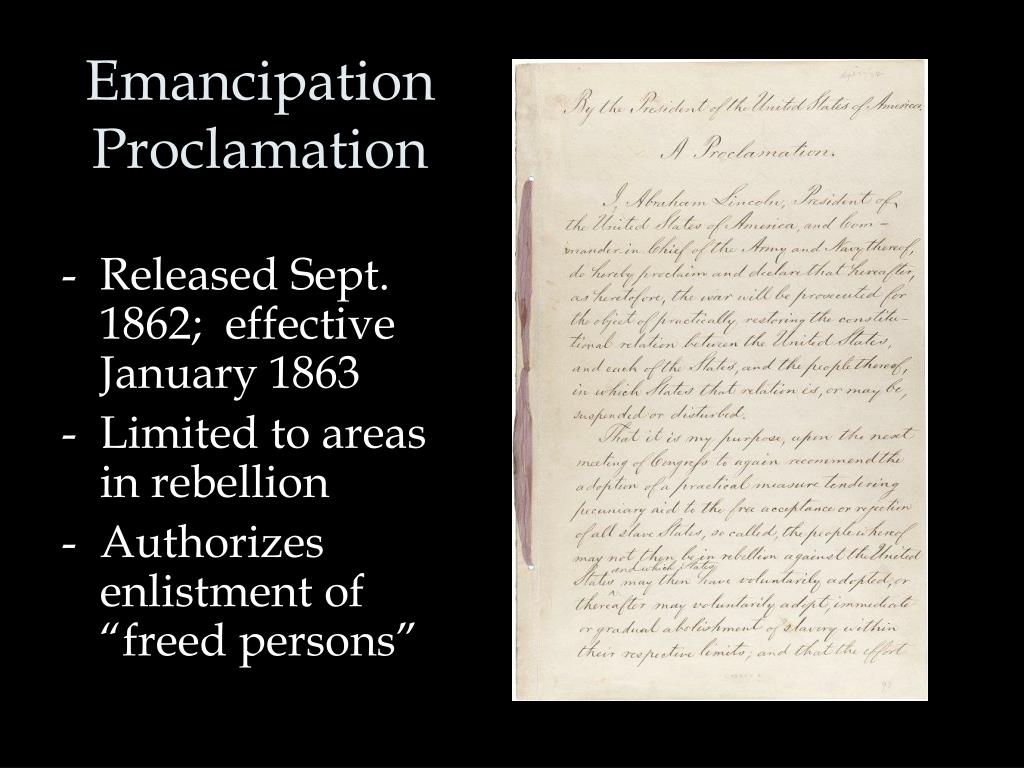 Emancipation
Proclamation
- Released Sept.
1862;  effective
January 1863
- Limited to areas
in rebellion
- Authorizes
enlistment of
“freed persons”
By the President of the United States of America.
A Proclamation.
I, Abraham Lincoln, President of
the United States of America, and Com-
mander in Chief of the Army and Navy thereof,
do hereby proclaim and declare that hereafter,
as heretofore, the war will be prosecuted for
the object of practically restoring the constitu-
tional relation between the United States,
and each of the States, and the people thereof,
in which States that relation is, or may be,
suspended or disturbed.
That it is my purpose, upon the next
meeting of Congress to again recommend the
adoption of a practical measure tendering
pecuniary aid to the free acceptance or rejection
of all slave States, so called, the people whereof
may not then be in rebellion against the United
and which States
States may then have voluntarily adopted, or
thereafter may voluntarily adopt, immediate
or gradual abolishment of slavery within
their respective limits; and that the effort